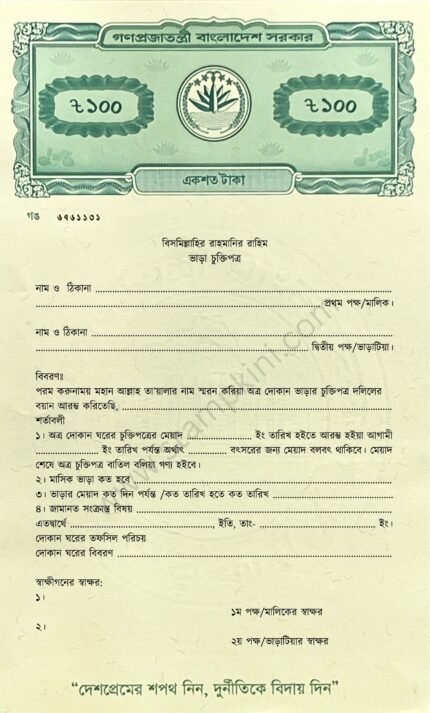 গণপ্রজাতন্ত্রী বাংলাদেশ সরকার
৳১০০
৳১০০
একশত টাকা
গঙ ৬৭৬১১৩১
বিসমিল্লাহির রাহমানির রাহিম
ভাড়া চুক্তিপত্র
নাম ও ঠিকানা ............................................................
............................................................ প্রথম পক্ষ/মালিক।
নাম ও ঠিকানা ............................................................
............................................................ দ্বিতীয় পক্ষ/ভাড়াটিয়া।
বিবরণঃ
পরম করুনাময় মহান আল্লাহ তা'য়ালার নাম স্মরন করিয়া অত্র দোকান ভাড়ার চুক্তিপত্র দলিলের
বয়ান আরম্ভ করিতেছি, ............................................................
শর্তাবলী
১। অত্র দোকান ঘরের চুক্তিপত্রের মেয়াদ .................... ইং তারিখ হইতে আরম্ভ হইয়া আগামী
.................... ইং তারিখ পর্যন্ত অর্থাৎ .................... বৎসরের জন্য মেয়াদ বলবৎ থাকিবে। মেয়াদ
শেষে অত্র চুক্তিপত্র বাতিল বলিয়া গণ্য হইবে।
২। মাসিক ভাড়া কত হবে ............................................................
৩। ভাড়ার মেয়াদ কত দিন পর্যন্ত /কত তারিখ হতে কত তারিখ ..............................
৪। জামানত সংক্রান্ত বিষয় ............................................................
এতদ্বার্থে ........................., ইতি, তাং- ......................... ইং।
দোকান ঘরের তফসিল পরিচয়
দোকান ঘরের বিবরণ ............................................................
স্বাক্ষীগনের স্বাক্ষর:
১।
১ম পক্ষ/মালিকের স্বাক্ষর
২।
২য় পক্ষ/ভাড়াটিয়ার স্বাক্ষর
www.stampkini.com
“দেশপ্রেমের শপথ নিন, দুর্নীতিকে বিদায় দিন”